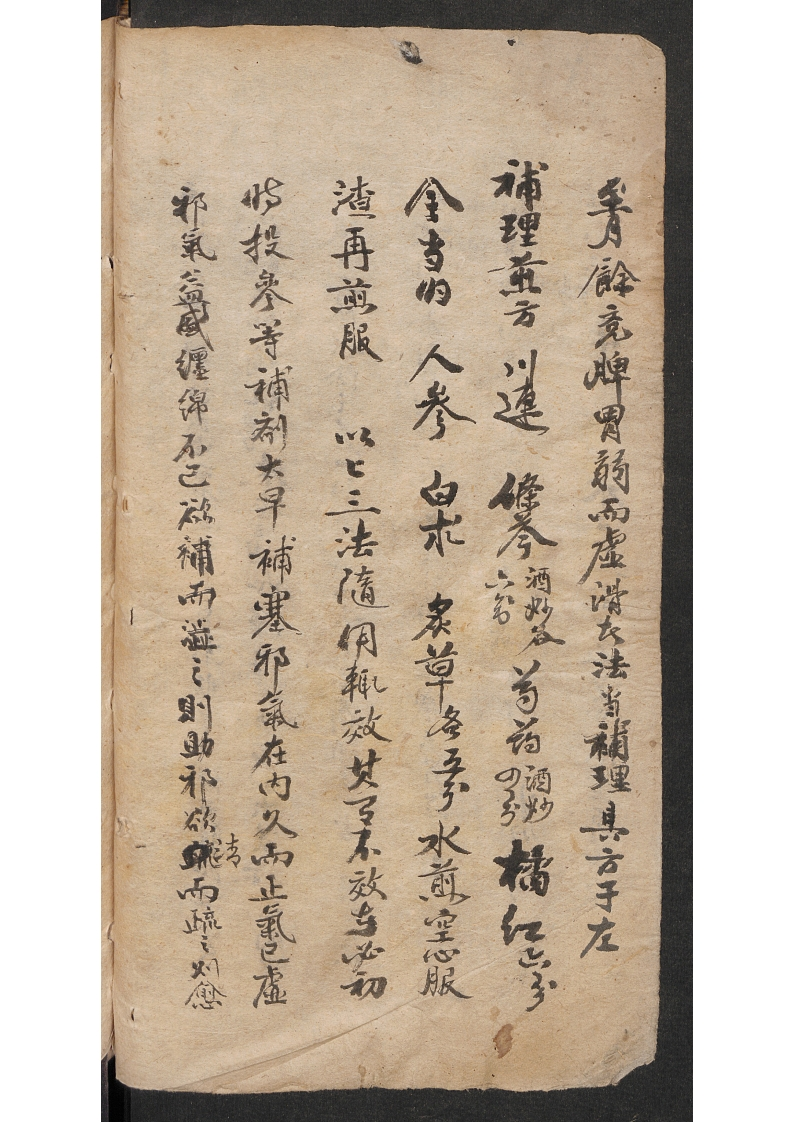 月餘竟脾胃弱而虛滑者法当補理具方于左
補理煎方 川連 條芩酒炒各六分 芍药酒炒四分 橘红六分
全当归 人參 白朮 炙草各五分 水煎空心服
渣再煎服 以上三法隨用輒效其有不效者必初
時投參等補剤太早補塞邪氣在内久而正氣已虛
邪氣益盛纏綿不已欲補而澁之則助邪欲清而疏之则愈